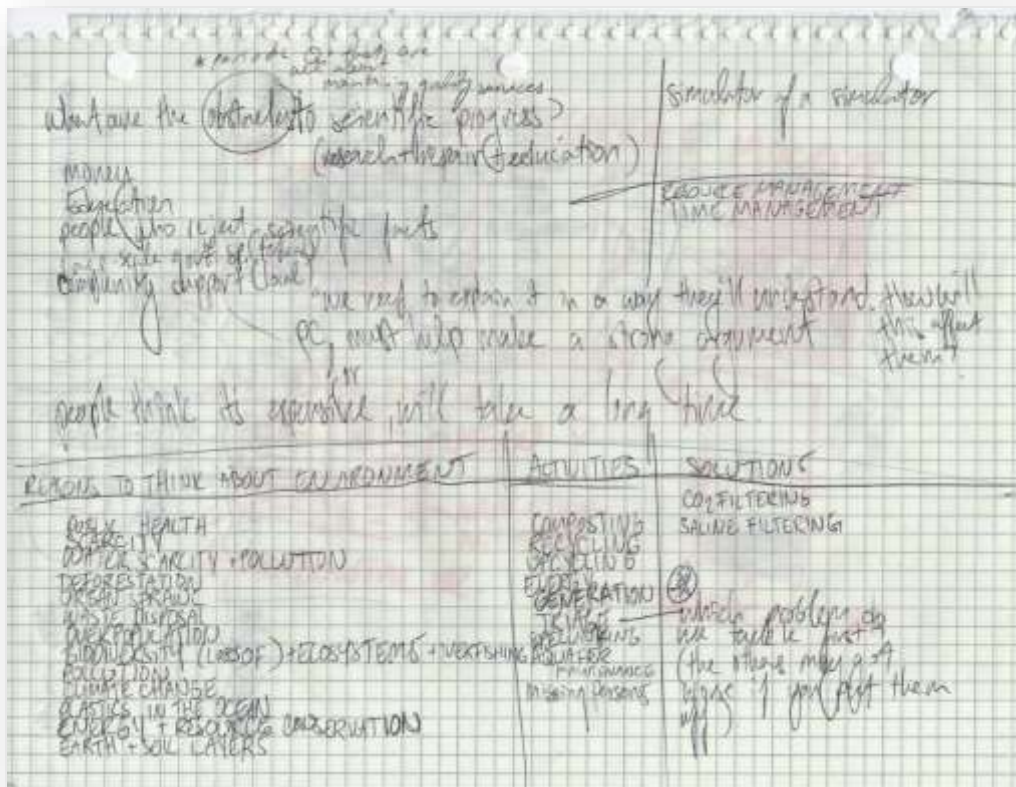 all about
maintaining quality services
what are the obstacles to scientific progress?
(research + repair + education)
simulator of a simulator
money
Education
people who reject scientific facts
community support (local)
REDUCE MANAGEMENT
TIME MANAGEMENT
"we need to explain it in a way they'll understand. How will
this affect
them?
PC, must help make a strong argument
or
people think its expensive, will take a long time.
REASONS TO THINK ABOUT ENVIRONMENT
PUBLIC HEALTH
SCARCITY
WATER SCARCITY + POLLUTION
DEFORESTATION
URBAN SPRAWL
WASTE DISPOSAL
OVERPOPULATION
BIODIVERSITY (LOSS OF) + ECOSYSTEMS + OVERFISHING
POLLUTION
CLIMATE CHANGE
PLASTICS IN THE OCEAN
ENERGY + RESOURCE CONSERVATION
EARTH + SOIL LAYERS
ACTIVITIES
COMPOSTING
RECYCLING
UPCYCLING
ENERGY
GENERATION
TRIAGE
AQUAFER
MAINTENANCE
Missing Persons
SOLUTIONS
CO2 FILTERING
SALINE FILTERING
which problem do
we tackle first
(the others may get
worse if you put them
off)